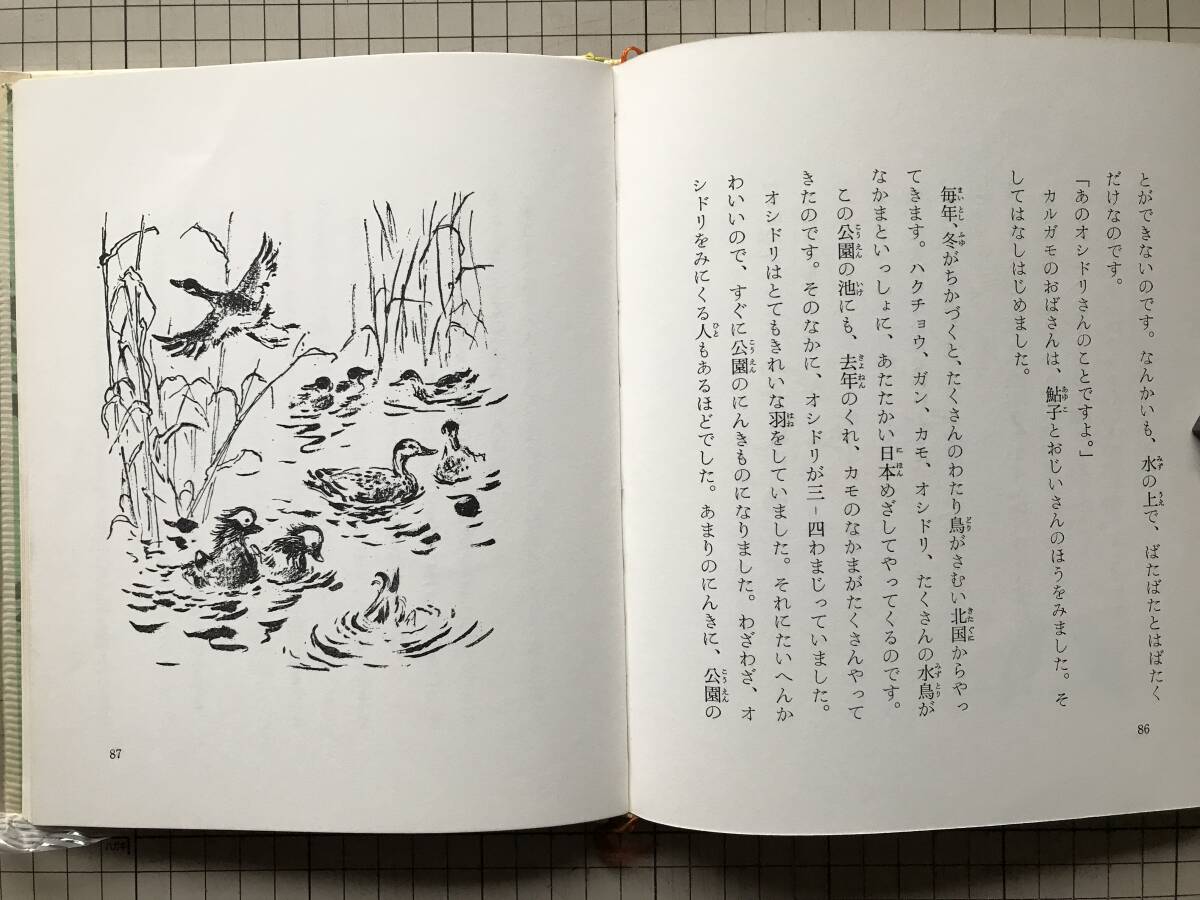 とができないのです。なんかいも、水の上で、ばたばたとはばたく
だけなのです。
「あのオシドリさんのことですよ。」
カルガモのおばさんは、鮎子とおじいさんのほうをみました。そ
してはなしはじめました。
毎年、冬がちかづくと、たくさんのわたり鳥がさむい北国からやっ
てきます。ハクチョウ、ガン、カモ、オシドリ、たくさんの水鳥が
なかまといっしょに、あたたかい日本めざしてやってくるのです。
この公園の池にも、去年のくれ、カモのなかまがたくさんやって
きたのです。そのなかに、オシドリが三-四わまじっていました。
オシドリはとてもきれいな羽をしていました。それにたいへんか
わいいので、すぐに公園のにんきものになりました。わざわざ、オ
シドリをみにくる人もあるほどでした。あまりのにんきに、公園の
86
87